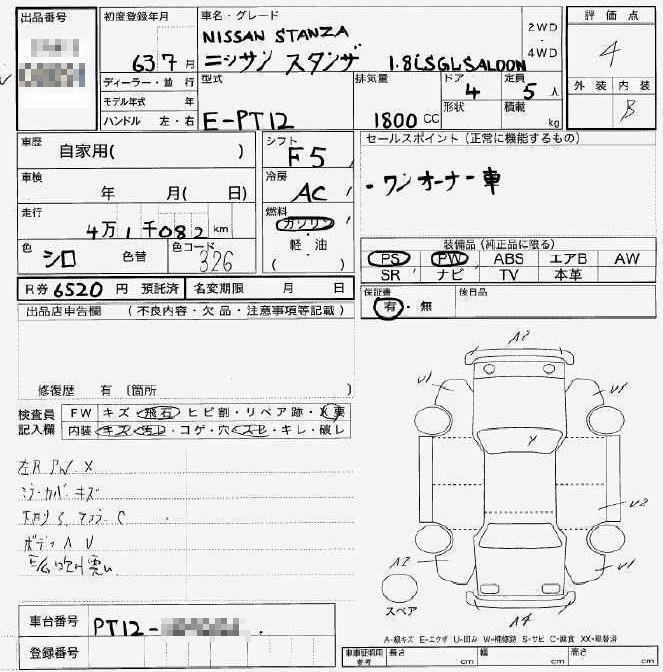 出品番号
初度登録年月
637月
ディーラー・並 行
モデル年式 年
ハンドル 左・右
車名・グレード
NISSAN STANZA
ニッサン スタンザ 1.8iSGLSALOON
2WD
・
4WD
型式
E-PT12
排気量
1800 CC
ドア
4
定員
5 人
形状
積載
kg
評 価 点
4
外 装 内 装
B
車歴
自家用( )
車検
年 月( 日)
走行
4万1千082 km
色
シロ 色替
色コード
326
シフト
F5
冷房
AC
燃料
ガソリン
・
軽・油
( )
セールスポイント (正常に機能するもの)
・ワンオーナー車
装備品 (純正品に限る)
PS PW ABS エアB AW
SR ナビ TV 本革
R券 6520 円 預託済 名変期限 月 日
保証書
有・無
後日品
出品店申告欄 (不良内容・欠品・注意事項等記載)
修復歴 有 (箇所
検査員
記入欄
FW キズ・飛石・ヒビ割・リペア跡・X要
内装 キズ・汚レ・コゲ・穴・スレ・キレ・破レ
左R PW X
ミラーカバーキズ
下廻り S マフラー C
ボディ A U
車台番号 PT12-
登録番号
A2
U1
U1
Y
U2
A2
U1
A4
スペア
A-線キズ E-エクボ U-凹み W-補修跡 S-サビ C-腐食 XX-取替済
車庫証明用
参考
長さ cm
幅 cm
高さ cm